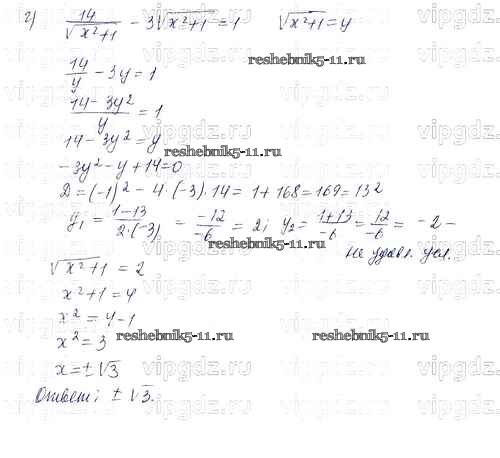 г) 14/√(x²+1) - 3√(x²+1) = 1   √(x²+1) = y
14/y - 3y = 1
(14-3y²)/y = 1
14 - 3y² = y
-3y² - y + 14 = 0
D = (-1)² - 4·(-3)·14 = 1 + 168 = 169 = 13²
y₁ = (1-13)/(2·(-3)) = (-12)/(-6) = 2; y₂ = (1+13)/(-6) = 12/(-6) = -2 -
не удовл. усл.
√(x²+1) = 2
x² + 1 = 4
x² = 4 - 1
x² = 3
x = ±√3
Ответ: ±√3.
vipgdz.ru
reshebnik5-11.ru
reshebnik5-11.ru
reshebnik5-11.ru
reshebnik5-11.ru